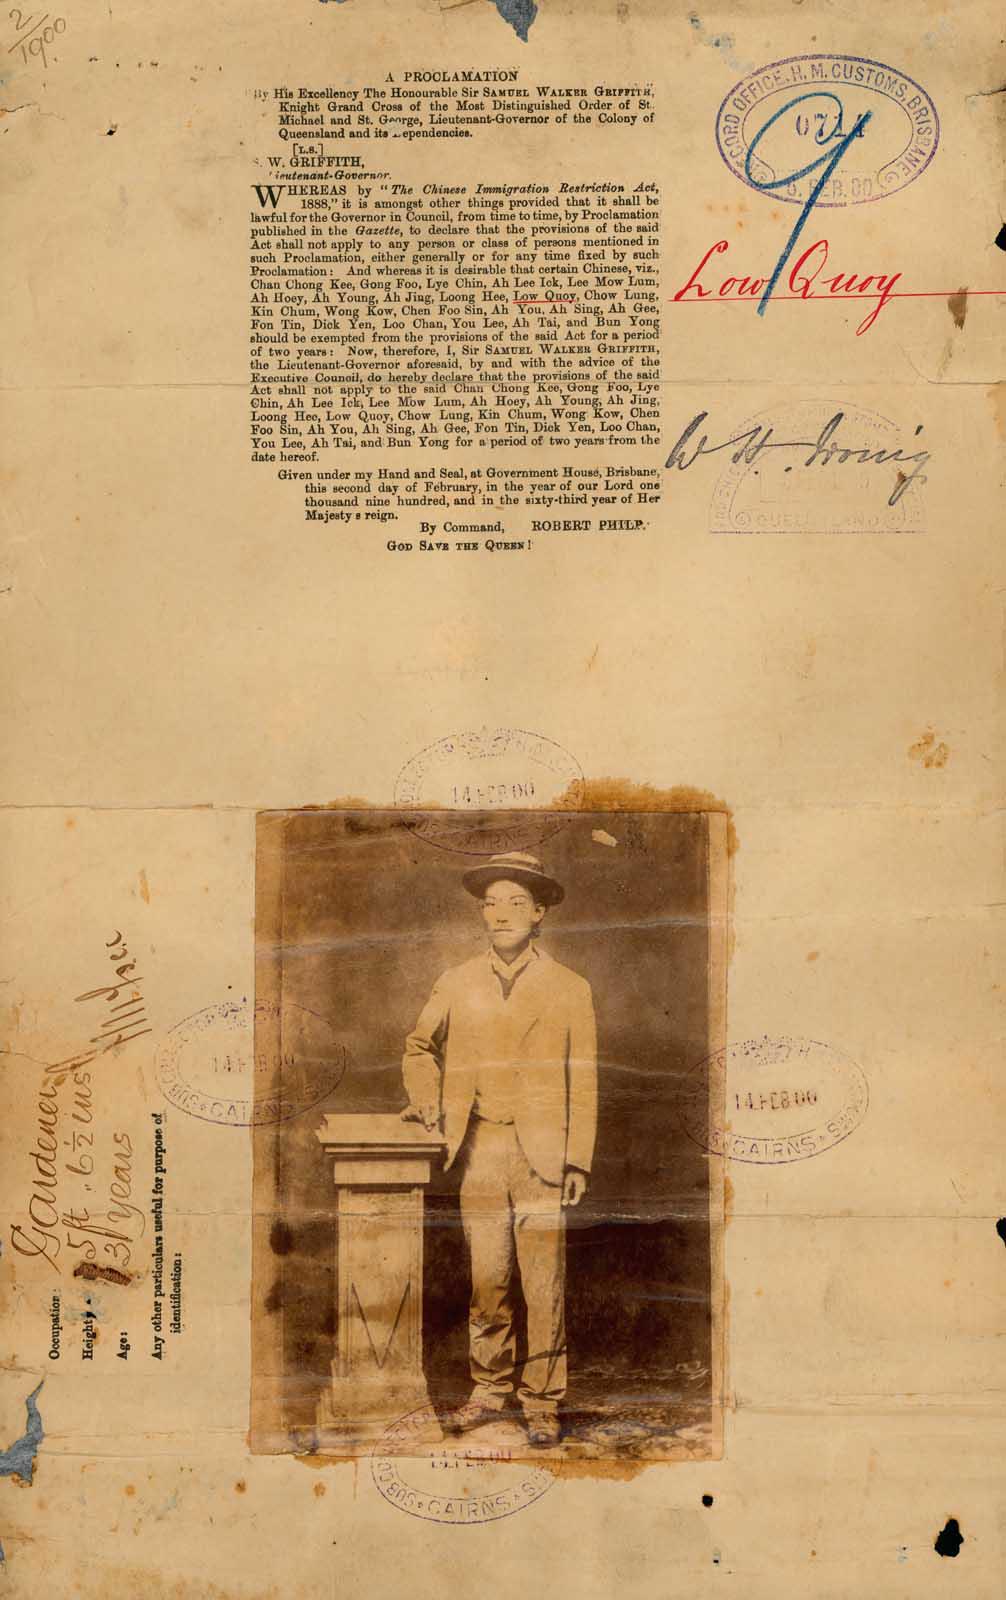 2/1900
A PROCLAMATION
By His Excellency The Honourable Sir SAMUEL WALKER GRIFFITH,
Knight Grand Cross of the Most Distinguished Order of St.
Michael and St. George, Lieutenant-Governor of the Colony of
Queensland and its Dependencies.
[L.S.]
S. W. GRIFFITH,
Lieutenant-Governor.
WHEREAS by "The Chinese Immigration Restriction Act,
1888," it is amongst other things provided that it shall be
lawful for the Governor in Council, from time to time, by Proclamation
published in the Gazette, to declare that the provisions of the said
Act shall not apply to any person or class of persons mentioned in
such Proclamation, either generally or for any time fixed by such
Proclamation: And whereas it is desirable that certain Chinese, viz.,
Chan Chong Kee, Gong Foo, Lye Chin, Ah Lee Ick, Lee Mow Lum,
Ah Hoey, Ah Young, Ah Jing, Loong Hee, Low Quoy, Chow Lung,
Kin Chum, Wong Kow, Chen Foo Sin, Ah You, Ah Sing, Ah Gee,
Fon Tin, Dick Yen, Loo Chan, You Lee, Ah Tai, and Bun Yong
should be exempted from the provisions of the said Act for a period
of two years: Now, therefore, I, Sir SAMUEL WALKER GRIFFITH,
the Lieutenant-Governor aforesaid, by and with the advice of the
Executive Council, do hereby declare that the provisions of the said
Act shall not apply to the said Chan Chong Kee, Gong Foo, Lye
Chin, Ah Lee Ick, Lee Mow Lum, Ah Hoey, Ah Young, Ah Jing,
Loong Hee, Low Quoy, Chow Lung, Kin Chum, Wong Kow, Chen
Foo Sin, Ah You, Ah Sing, Ah Gee, Fon Tin, Dick Yen, Loo Chan,
You Lee, Ah Tai, and Bun Yong for a period of two years from the
date hereof.
Given under my Hand and Seal, at Government House, Brisbane,
this second day of February, in the year of our Lord one
thousand nine hundred, and in the sixty-third year of Her
Majesty's reign.
By Command, ROBERT PHILP.
GOD SAVE THE QUEEN!
RECORD OFFICE, H. M. CUSTOMS, BRISBANE
FEB. 00
9
Low Quoy
W H.
QUEENSLAND
SUB COLLECTOR
14. FEB 00
CAIRNS
SUB COLLECTOR
14. FEB 00
CAIRNS
14. FEB 00
CAIRNS
SUB COLLECTOR
14. FEB 00
CAIRNS
Occupation: Gardener
Height: 5ft. 6½ ins
Age: 31 Years
Any other particulars useful for purpose of
identification: